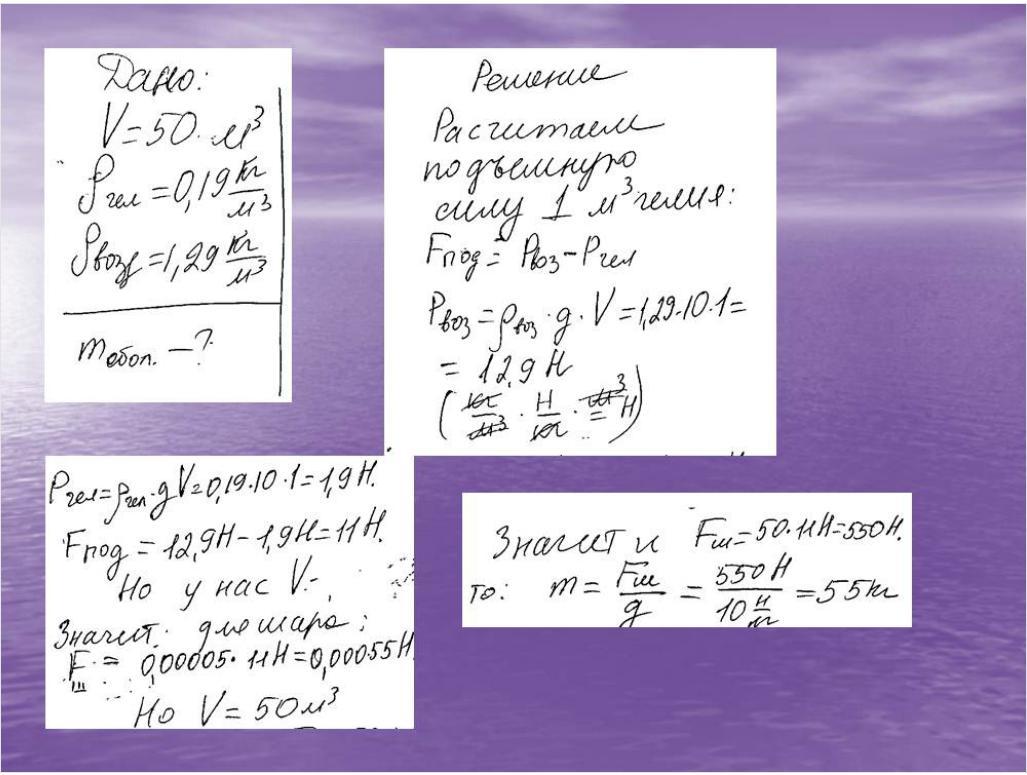 Дано:
V=50 м³
ρгел=0,19 кг/м³
ρвозд=1,29 кг/м³
mобол. –?
Решение
Расчитаем
подъемную
силу 1 м³ гелия:
Fпод = Pвоз–Pгел
Pвоз=ρвоз·g·V=1,29·10·1=
= 12,9 Н
(кг/м³ · Н/кг · м³ = Н)
Pгел=ρгел·gV=0,19·10·1=1,9Н.
Fпод = 12,9Н–1,9Н=11Н.
Но у нас V
Значит для шара:
Fш = 0,00005·11Н=0,00055Н
Но V=50м³
Значит и Fш=50·11Н=550Н.
то: m = Fш/g = 550Н/10 Н/кг = 55кг